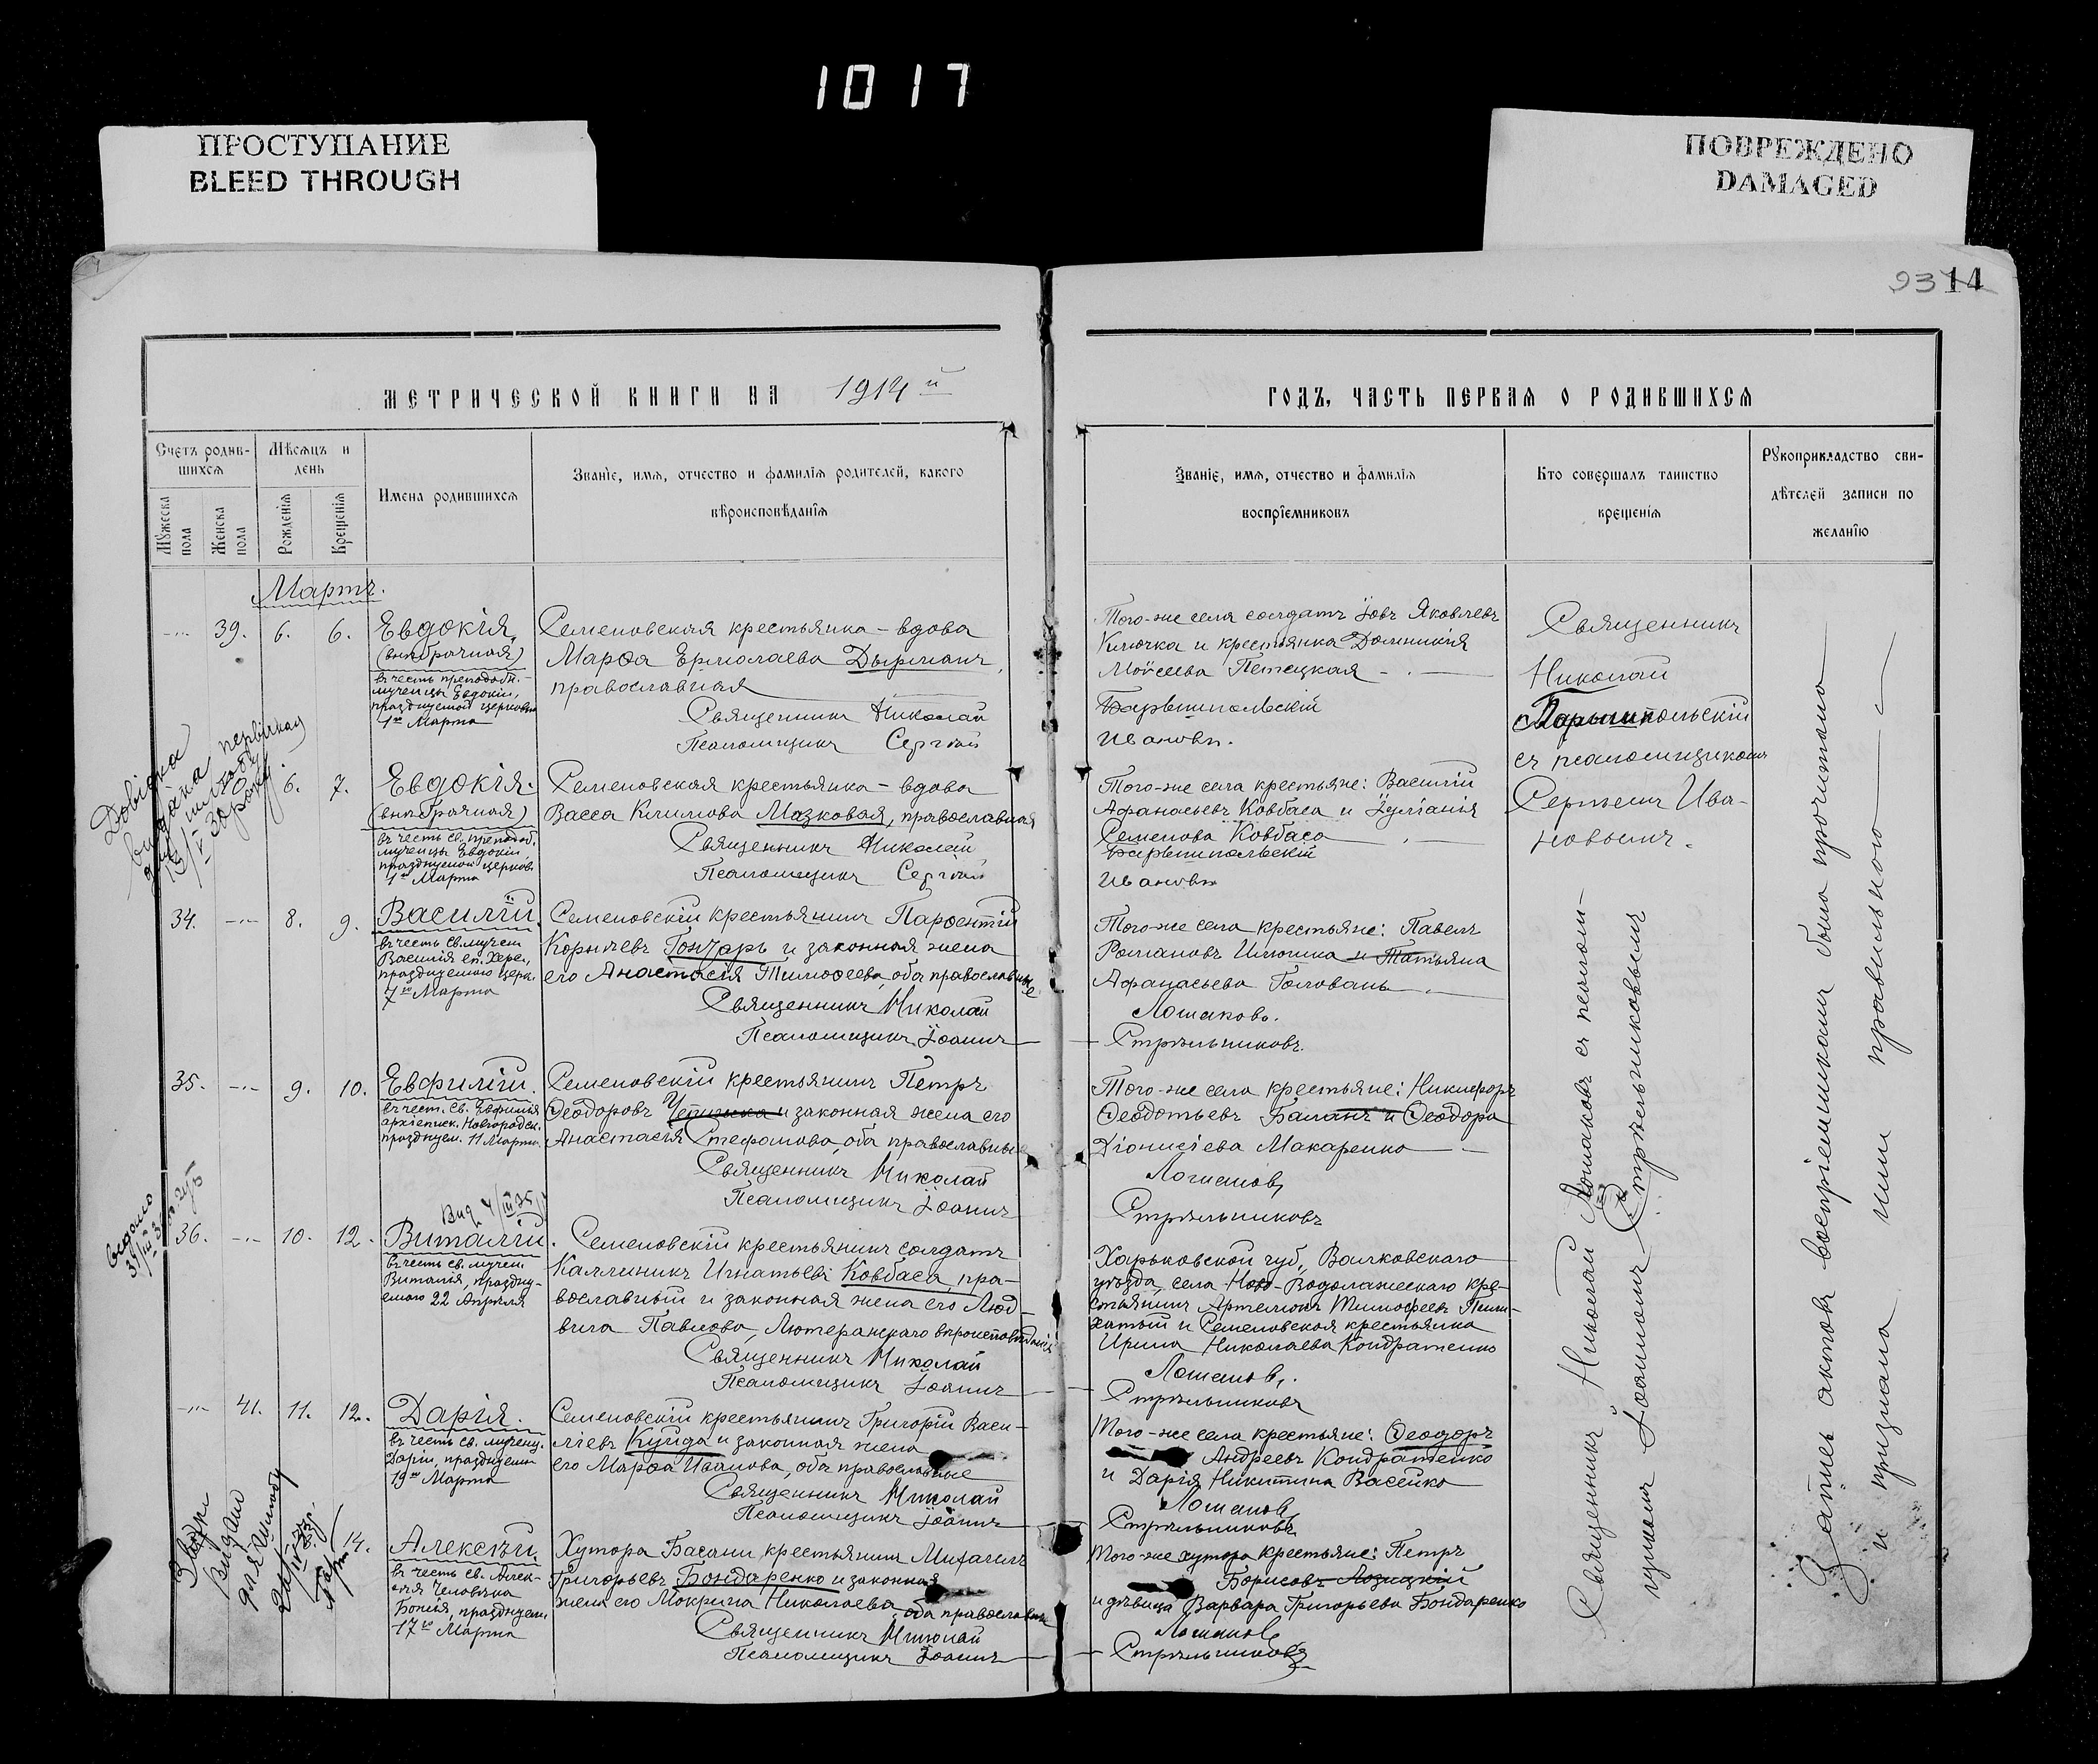 1017
ПРОСТУПАНИЕ
BLEED THROUGH
ПОВРЕЖДЕНО
DAMAGED
93 14
МЕТРИЧЕСКОЙ КНИГИ НА 1914й
ГОДЪ, ЧАСТЬ ПЕРВАЯ О РОДИВШИХСЯ
Счетъ родив-
шихся
Мѣсяцъ и
день
Мужеска
пола
Женска
пола
Рожденія
Крещенія
Имена родившихся
Званіе, имя, отчество и фамилія родителей, какого
вѣроисповѣданія
Званіе, имя, отчество и фамилія
воспріемниковъ
Кто совершалъ таинство
крещенія
Рукоприкладство сви-
дѣтелей записи по
желанію
Мартъ.
39. 6. 6. Евдокія,
(внѣбрачная)
въ честь преподобн.-
мученицы Евдокіи,
празднуемой церковью
1го Марта
Семеновская крестьянка – вдова
Марѳа Ермолаева Дырманъ,
православная
Священникъ Николай
Псаломщикъ Сергѣй
Того-же села солдатъ Іовъ Яковлевъ
Ключка и крестьянка Домникія
Моѵсеева Петецкая
Барышпольскій
Ивановъ.
Священникъ
Николай
Барышпольскій
съ псаломщикомъ
Сергѣемъ Ива-
новымъ.
Довідка
видана
40. 6. 7. Евдокія.
(внѣбрачная)
въ честь св. преподоб.
мученицы Евдокіи
празднуемой церковью
1го Марта
Семеновская крестьянка – вдова
Васса Климова Мазковая, православная
Священникъ Николай
Псаломщикъ Сергѣй
Того-же села крестьяне: Василій
Афанасьевъ Ковбаса и Іуліанія
Семенова Ковбаса
Барышпольскій
Ивановъ
34. 8. 9. Василій.
въ честь св. мучен.
Василія еп. Херс.,
празднуемаго церк.
7го Марта
Семеновскій крестьянинъ Парѳентій
Корнѣевъ Гончаръ и законная жена
его Анастасія Тимоѳеева, оба православные
Священникъ Николай
Псаломщикъ Іоаннъ
Того-же села крестьяне: Павелъ
Романовъ Илюшка и Татьяна
Афанасьева Головань
Лошаковъ.
Стрѣльниковъ.
35. 9. 10. Евфимій.
въ чест. св. Евфимія
архіеписк. Новгородск.
празднуем. 11 Марта
Семеновскій крестьянинъ Петръ
Ѳеодоровъ и законная жена его
Анастасія Стефанова, оба православные
Священникъ Николай
Псаломщикъ Іоаннъ
Того-же села крестьяне: Никифоръ
Ѳеодотьевъ Баланъ и Ѳеодора
Діонисіева Макаренко
Лошаковъ
Стрѣльниковъ
36. 10. 12. Виталій.
въ честь св. мучен.
Виталія, праздну-
емаго 22 Апрѣля
Семеновскій крестьянинъ солдатъ
Каллиникъ Игнатьевъ Ковбаса, пра-
вославный и законная жена его Люд-
вига Павлова, Лютеранскаго вѣроисповѣданія
Священникъ Николай
Псаломщикъ Іоаннъ
Харьковской губ., Валковскаго
уѣзда, села Ново-Водолажскаго кре-
стьянинъ Артемонъ Тимофеевъ
и Семеновская крестьянка
Ирина Николаева Кондратенко
Лошаковъ.
Стрѣльниковъ
41. 11. 12. Дарія.
въ честь св. мучениц.
Даріи, празднуемой
19го Марта
Семеновскій крестьянинъ Григорій Васи-
ліевъ Куйда и законная жена
его Марѳа Иванова, оба православные
Священникъ Николай
Псаломщикъ Іоаннъ
Того-же села крестьяне: Ѳеодоръ
Андреевъ Кондратенко
и Дарія Никитина Васейко
Лошаковъ
Стрѣльниковъ
14. Алексѣй.
въ честь св. Алек-
сѣя Человѣка
Божія, празднуем.
17го Марта
Хутора Басани, крестьянинъ Михаилъ
Григорьевъ Бондаренко и законная
жена его Мокрина Николаева, оба православн.
Священникъ Николай
Псаломщикъ Іоаннъ
Того-же хутора крестьяне: Петръ
Борисовъ Лозицкій
и дѣвица Варвара Григорьева Бондаренко
Лошаковъ
Стрѣльниковъ
Священникъ Николай Лошаковъ съ псалом-
щикомъ Іоанномъ Стрѣльниковымъ
Запись актовъ воспріемникамъ была прочитана
и признана ими правильною